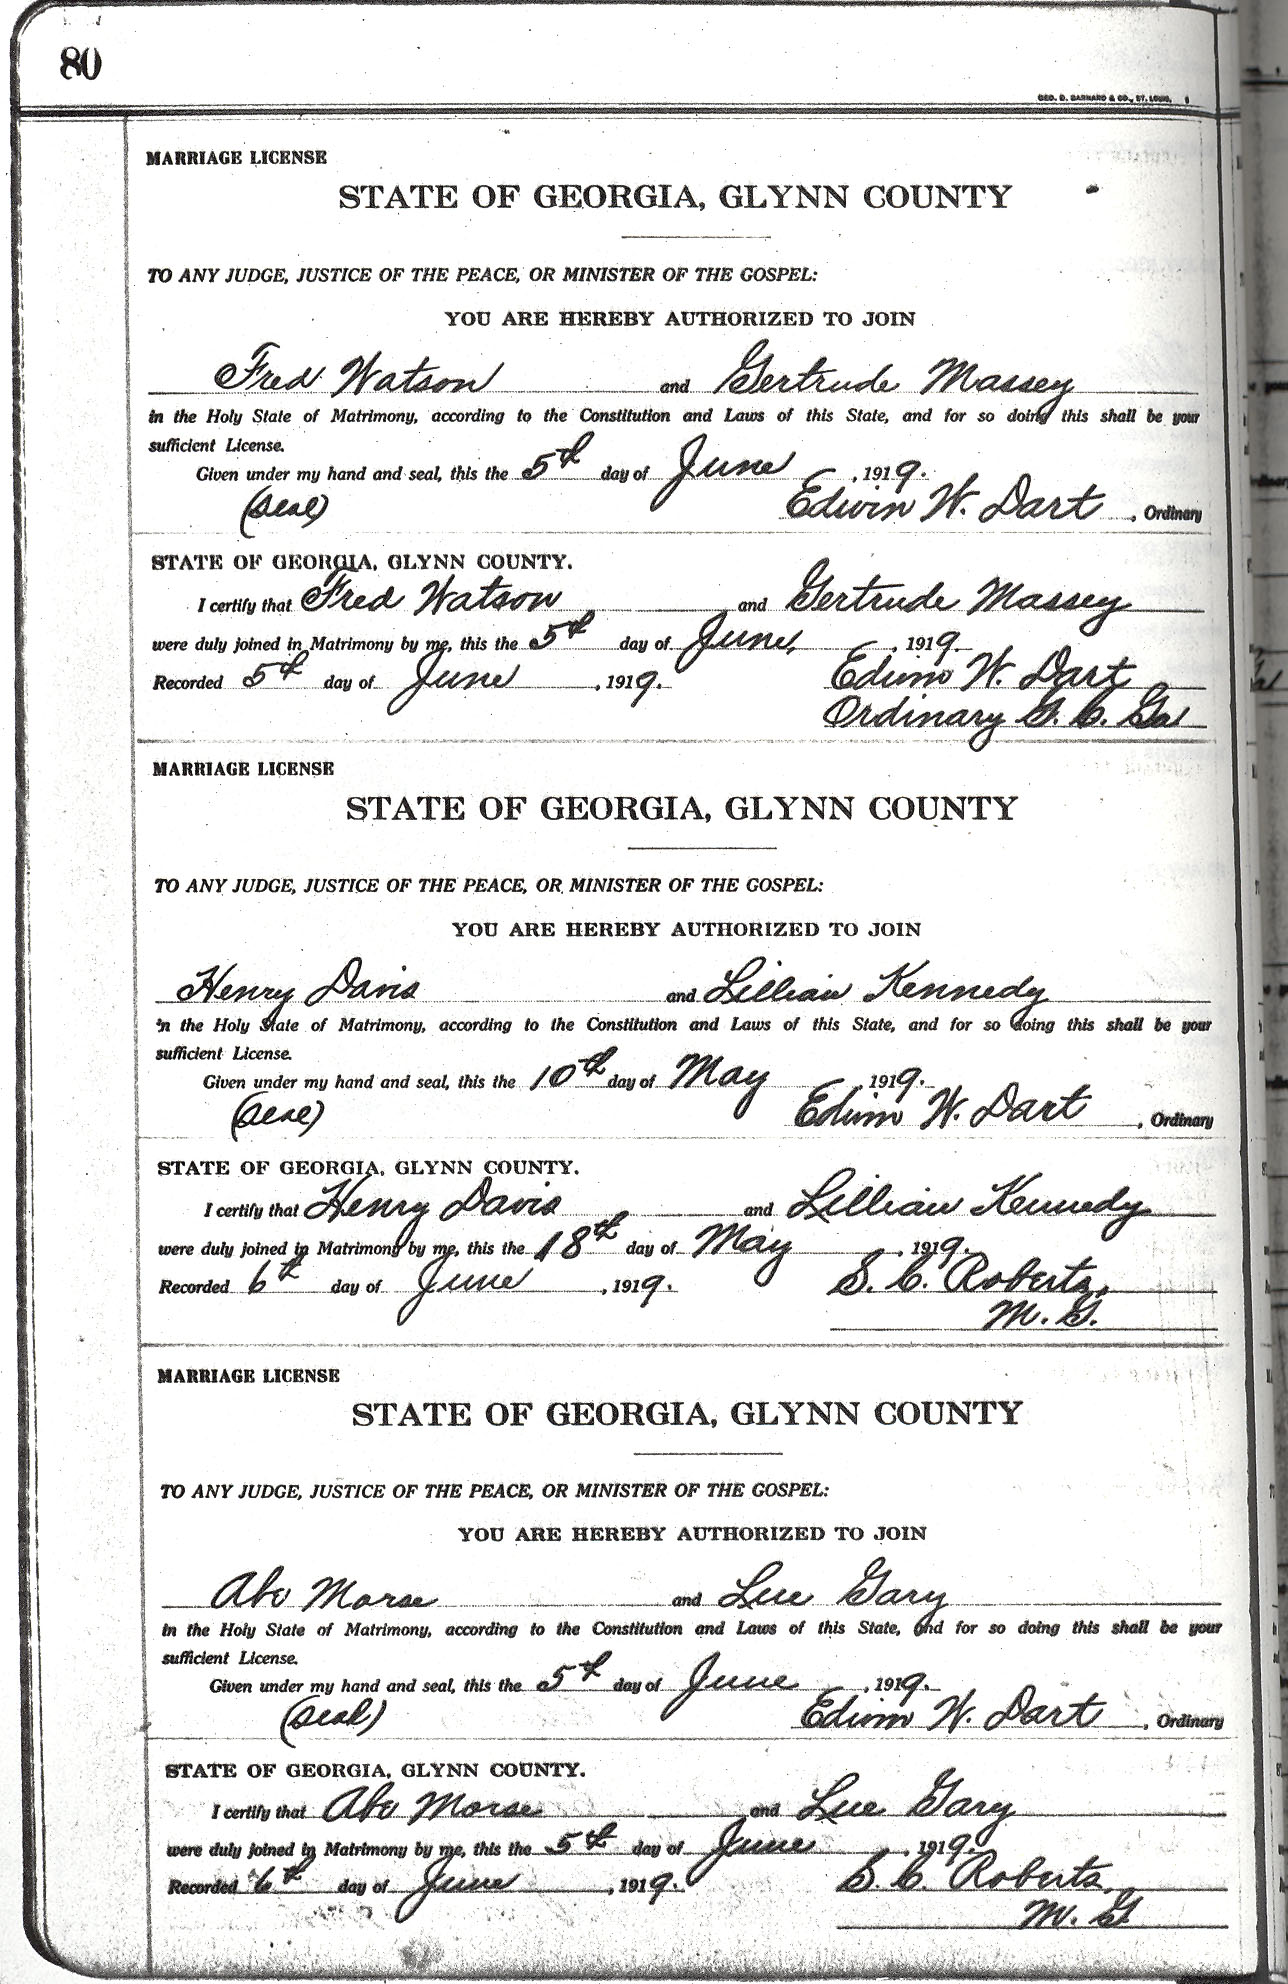 80
GEO. D. BARNARD & CO., ST. LOUIS.
MARRIAGE LICENSE
STATE OF GEORGIA, GLYNN COUNTY
TO ANY JUDGE, JUSTICE OF THE PEACE, OR MINISTER OF THE GOSPEL:
YOU ARE HEREBY AUTHORIZED TO JOIN
Fred Watson and Gertrude Massey
in the Holy State of Matrimony, according to the Constitution and Laws of this State, and for so doing this shall be your
sufficient License.
Given under my hand and seal, this the 5th day of June, 1919.
(Seal) Edwin W. Dart, Ordinary
STATE OF GEORGIA, GLYNN COUNTY.
I certify that Fred Watson and Gertrude Massey
were duly joined in Matrimony by me, this the 5th day of June, 1919.
Recorded 5th day of June, 1919. Edwin W. Dart
Ordinary G. C. Ga
MARRIAGE LICENSE
STATE OF GEORGIA, GLYNN COUNTY
TO ANY JUDGE, JUSTICE OF THE PEACE, OR MINISTER OF THE GOSPEL:
YOU ARE HEREBY AUTHORIZED TO JOIN
Henry Davis and Lillian Kennedy
in the Holy State of Matrimony, according to the Constitution and Laws of this State, and for so doing this shall be your
sufficient License.
Given under my hand and seal, this the 10th day of May, 1919.
(Seal) Edwin W. Dart, Ordinary
STATE OF GEORGIA, GLYNN COUNTY.
I certify that Henry Davis and Lillian Kennedy
were duly joined in Matrimony by me, this the 18th day of May, 1919.
Recorded 6th day of June, 1919. S. C. Roberts,
M. G.
MARRIAGE LICENSE
STATE OF GEORGIA, GLYNN COUNTY
TO ANY JUDGE, JUSTICE OF THE PEACE, OR MINISTER OF THE GOSPEL:
YOU ARE HEREBY AUTHORIZED TO JOIN
Abe Morse and Lue Gary
in the Holy State of Matrimony, according to the Constitution and Laws of this State, and for so doing this shall be your
sufficient License.
Given under my hand and seal, this the 5th day of June, 1919.
(Seal) Edwin W. Dart, Ordinary
STATE OF GEORGIA, GLYNN COUNTY.
I certify that Abe Morse and Lue Gary
were duly joined in Matrimony by me, this the 5th day of June, 1919.
Recorded 6th day of June, 1919. S. C. Roberts,
M. G.